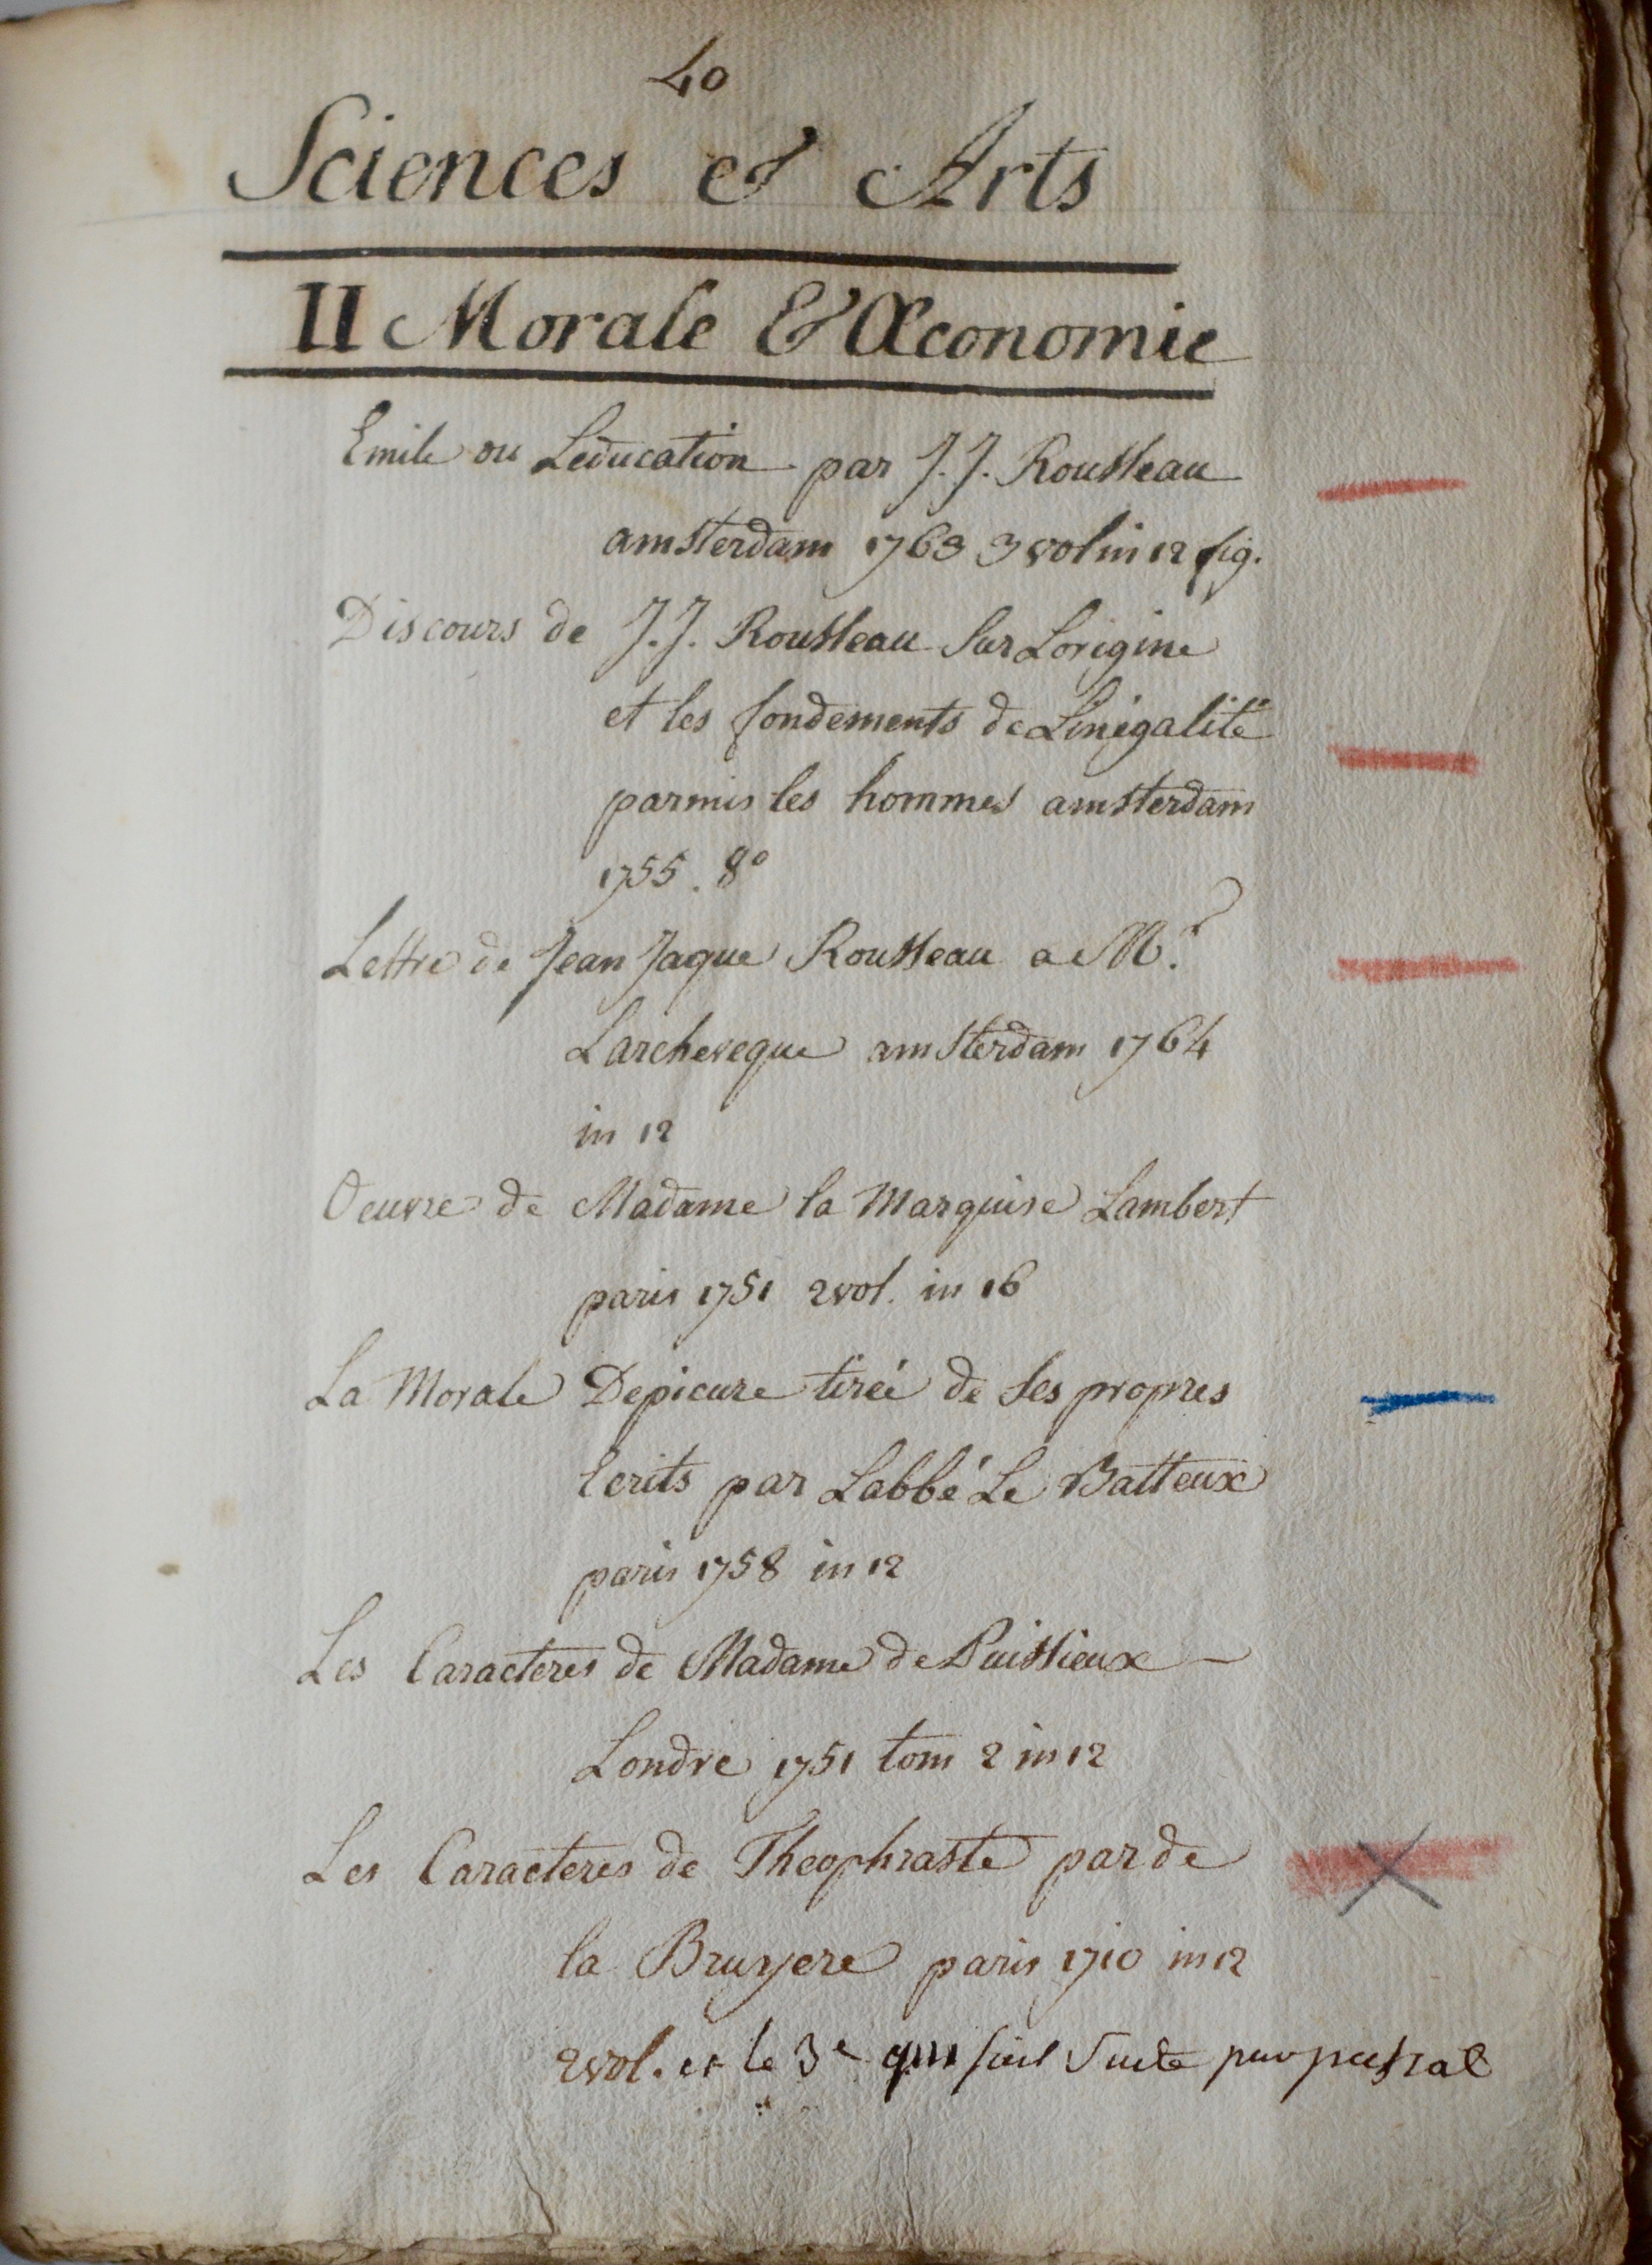 40
Sciences et Arts
II Morale & Œconomie
Emile ou Leducation par J. J. Rousseau
amsterdam 1763 3 vol in 12 fig.
Discours de J. J. Rousseau Sur Lorigine
et les fondements de Linégalité
parmis les hommes amsterdam
1755. 8º
Lettre de Jean Jaque Rousseau a Mr.
Larcheveque amsterdam 1764
in 12
Oeuvre de Madame la Marquise Lambert
paris 1751 2 vol. in 16
La Morale Depicure tirée de Ses propres
Ecrits par Labbé Le Batteux
paris 1758 in 12
Les Caracteres de Madame de Puissieux
Londre 1751 tom 2 in 12
Les Caracteres de Theophraste par de
la Bruyere paris 1710 in 12
2 vol. et le 3e qui fait Suite par pascal